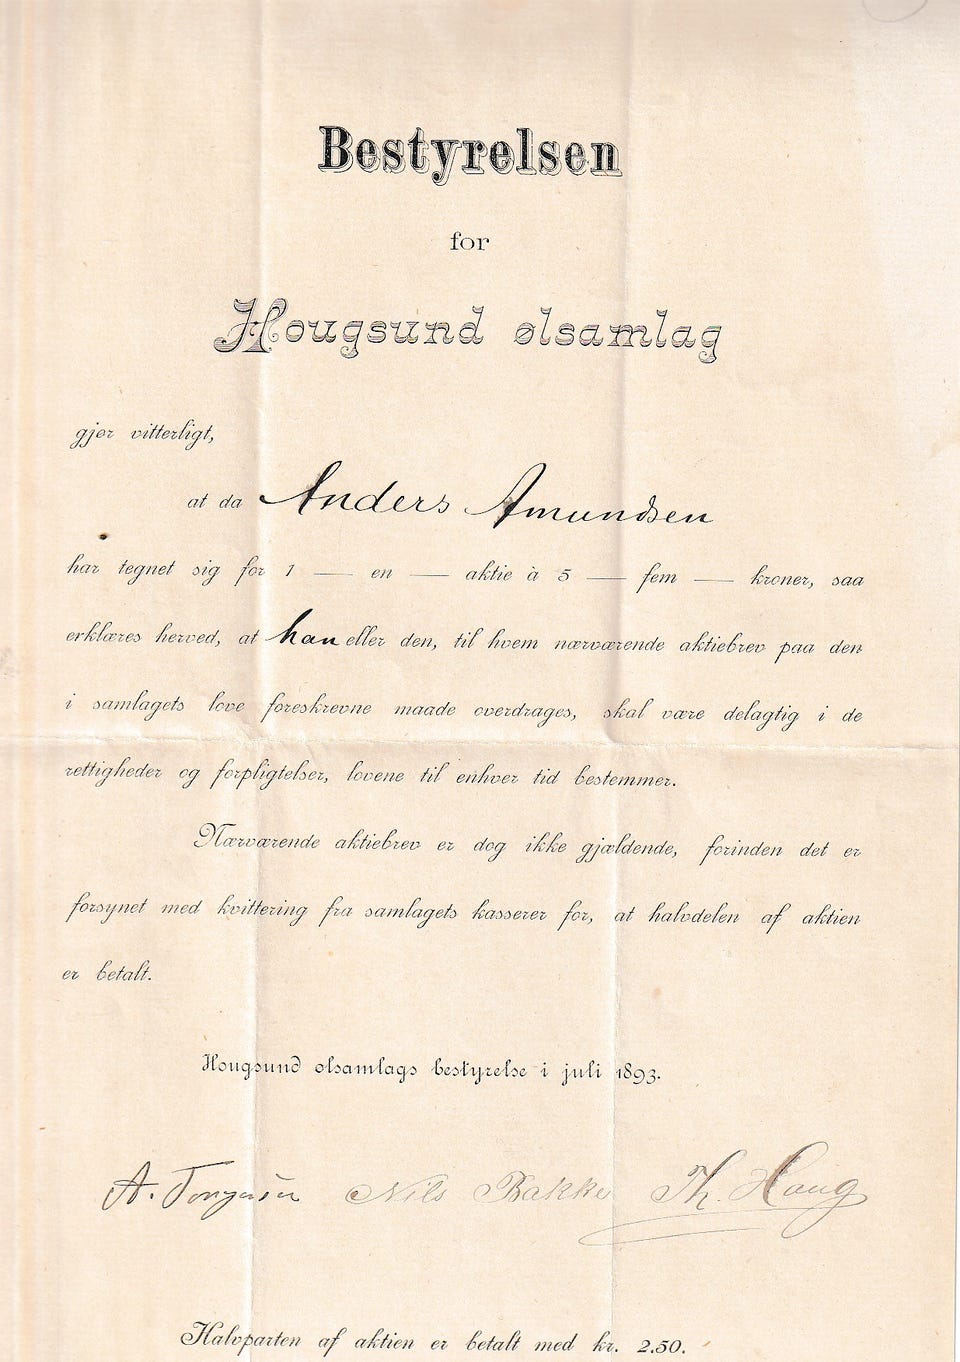 Bestyrelsen
for
Hougsund ølsamlag
gjør vitterligt,
at da Anders Amundsen
har tegnet sig for 1 — en — aktie à 5 — fem — kroner, saa
erklæres herved, at han eller den, til hvem nærværende aktiebrev paa den
i samlagets love foreskrevne maade overdrages, skal være delagtig i de
rettigheder og forpligtelser, lovene til enhver tid bestemmer.
Nærværende aktiebrev er dog ikke gjældende, forinden det er
forsynet med kvittering fra samlagets kasserer for, at halvdelen af aktien
er betalt.
Hougsund ølsamlags bestyrelse i juli 1893.
A. Torgersen Nils Bakke Th. Haug
Halvparten af aktien er betalt med kr. 2.50.